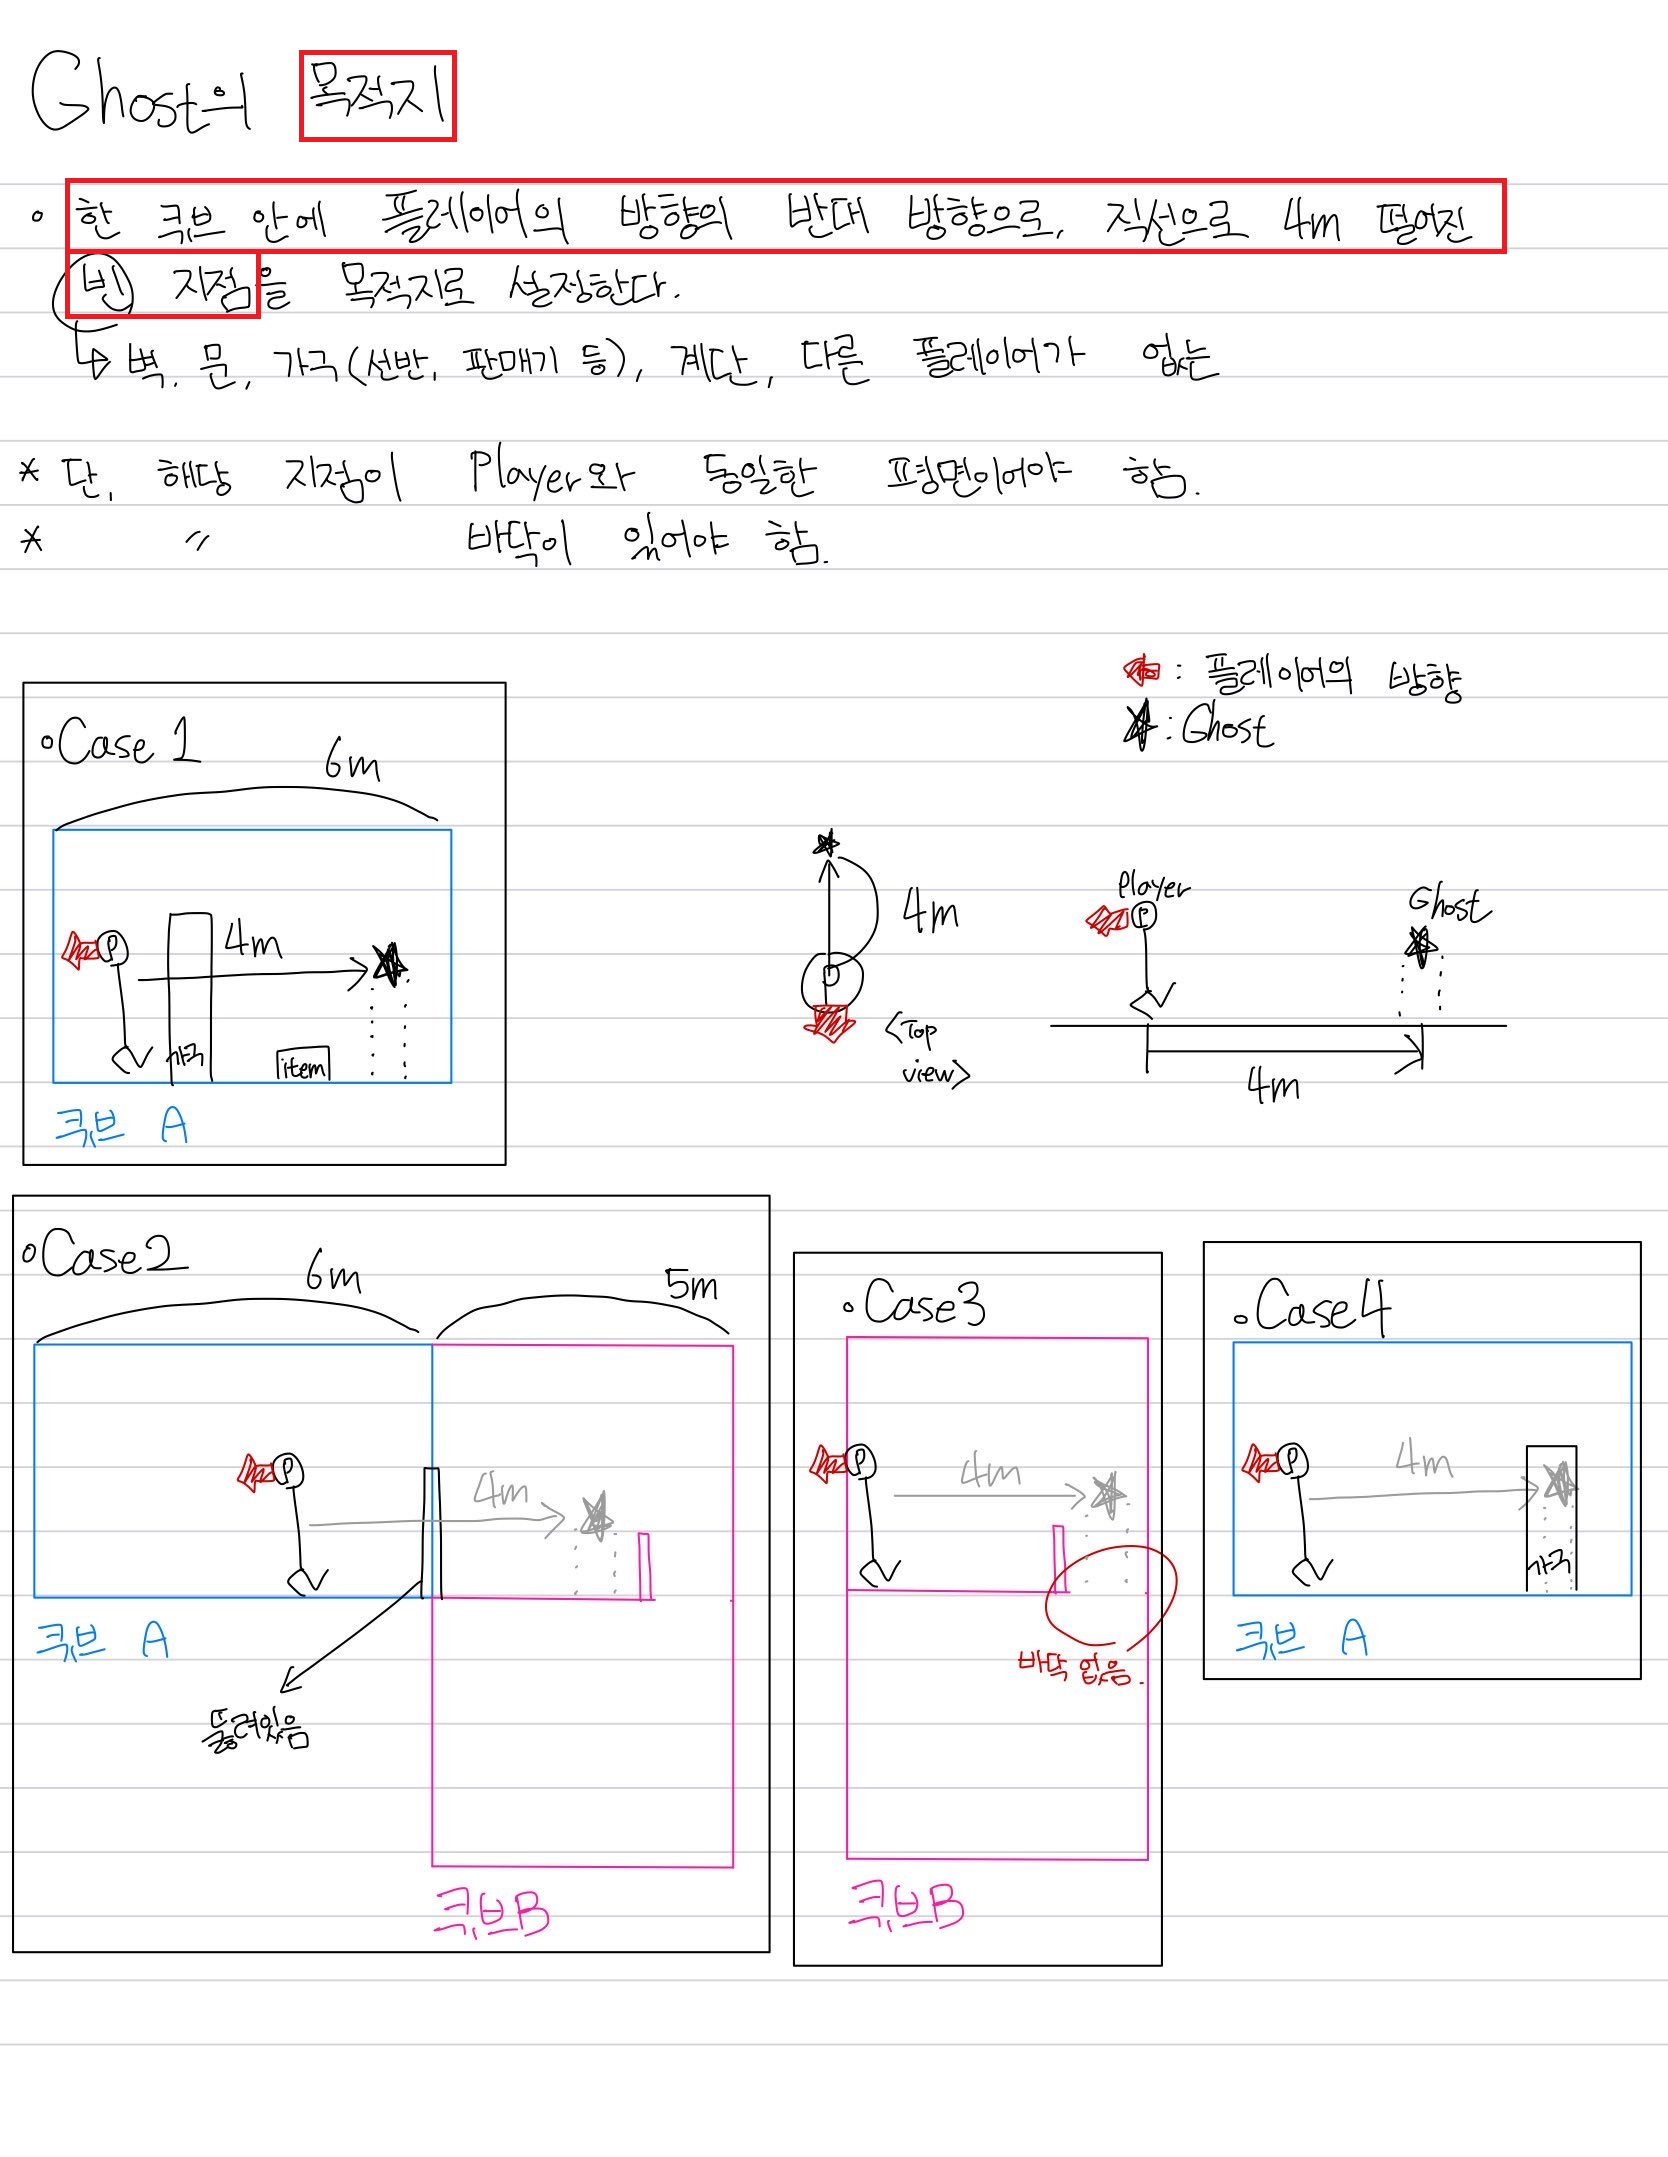 Ghost의 목적지
• 한 큐브 안에 플레이어의 방향의 반대 방향으로, 직선으로 4m 떨어진
빈 지점을 목적지로 설정한다.
↳ 벽, 문, 가구(선반, 판매기 등), 계단, 다른 플레이어가 없는
* 단, 해당 지점이 Player와 동일한 평면이어야 함.
* 〃 바닥이 있어야 함.
: 플레이어의 방향
: Ghost
• Case 1
6m
P
4m
가구
item
큐브 A
4m
P
<Top
view>
Player
P
Ghost
4m
• Case2
6m
5m
P
4m
큐브 A
뚫려있음
큐브B
• Case3
P
4m
바닥 없음.
큐브B
• Case4
P
4m
가구
큐브 A